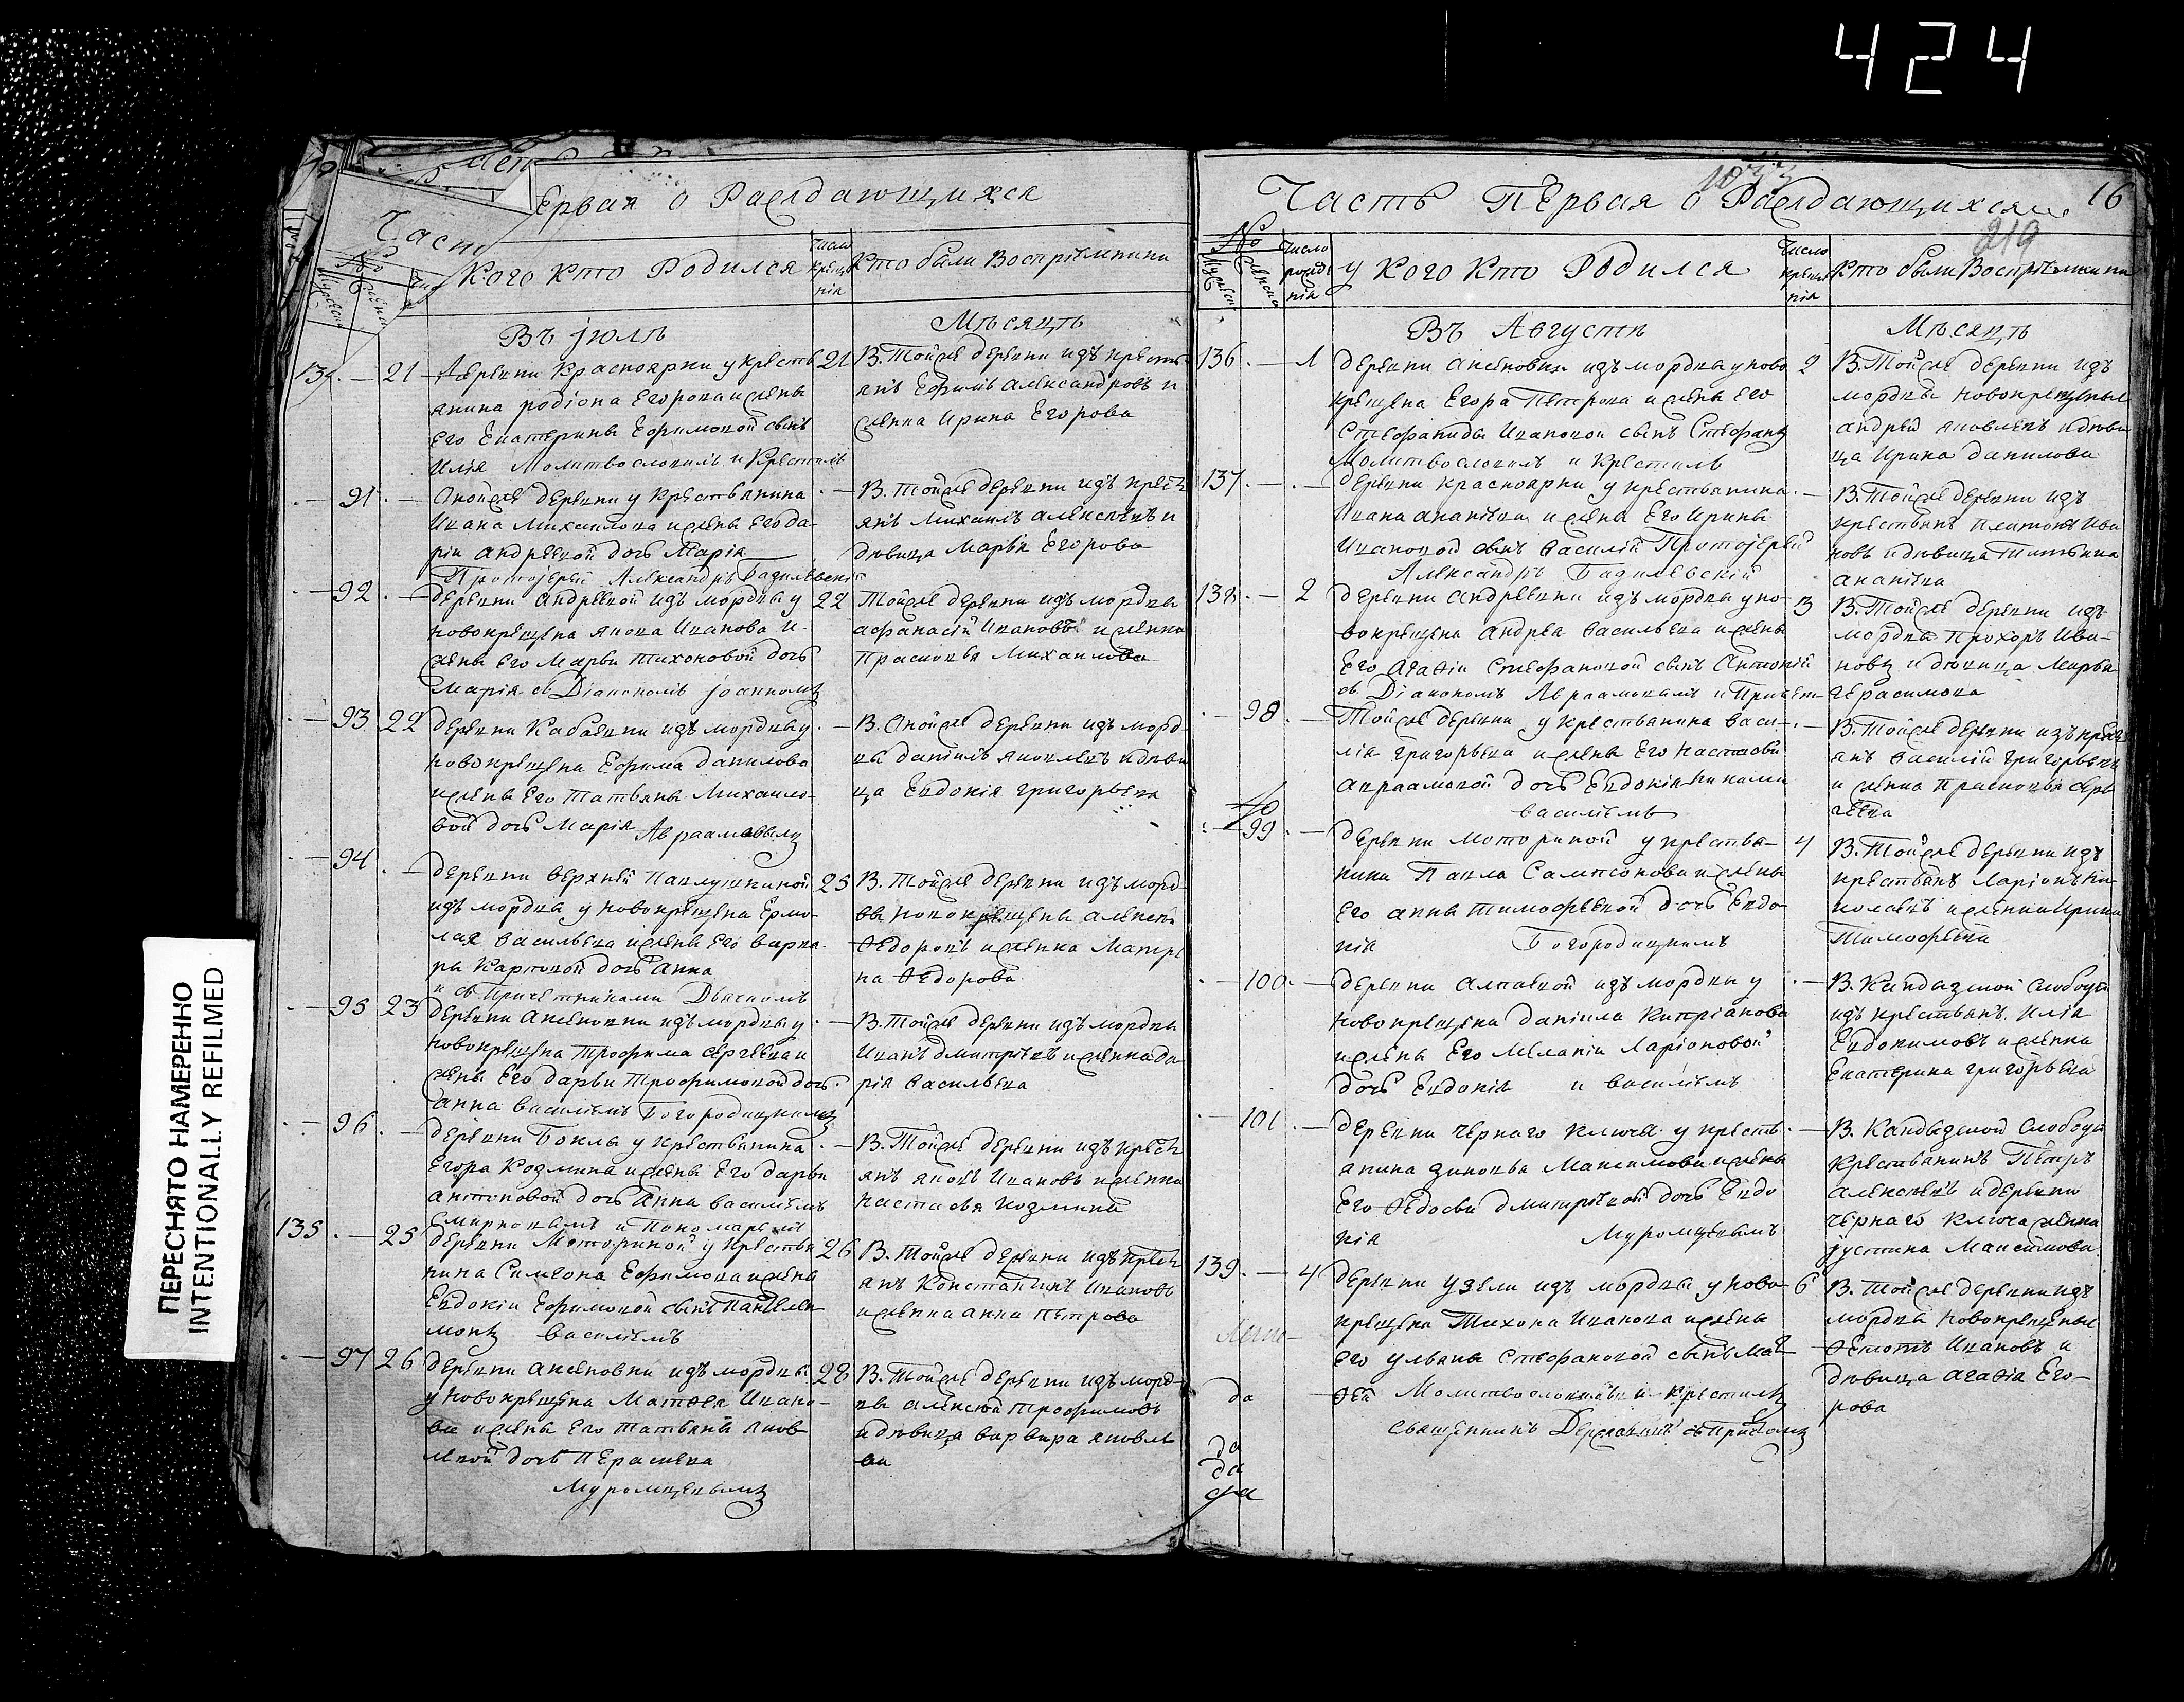 424
ПЕРЕСНЯТО НАМЕРЕННО
INTENTIONALLY REFILMED
Част
Ервая о Раждающихся
№
Кого кто Родился
число креще нія
Кто были Воспріемники
Въ Іюлѣ
Мѣсяцѣ
21 Деревни Красноярки у кресть
янина родіона Егорова и жены
Его Екатерины Ефимовой сынъ
Илія Молитвословилъ и Крестилъ
21 В. Тойже деревни изъ кресть
янъ Ефимъ Александровъ и
женка Ирина Егорова
91 Онойже деревни у Крестьянина
Ивана Михаилова и жены Его да-
ріи Андреевой дочь Марія
Протоіерей Александръ Базилевскій
В. тойже деревни изъ крест
янъ Михаилъ Алексѣевъ и
дѣвица Марья Егорова
92 деревни Андреевой изъ мордвы у
новокрещена якова Иванова и
жены Его Марьи Тихоновой дочь
Марія съ Діакономъ Іоанномъ
22 Тойже деревни изъ мордвы
афанасій Ивановъ и женка
Прасковья Михаилова
93 22 деревни Кабаевки изъ мордвы у
новокрещена Ефима данилова
и жены Его Татьяны Михаило-
вой дочь Марія Авраамовымъ
В. Онойже деревни изъ морд-
вы данилъ яковлевъ и дѣви
ца Евдокія григорьева
94 деревни верхней Павлушкиной
изъ мордвы у новокрещена Ермо-
лая васильева и жены Его варва-
ры Карповой дочь Анна
и съ Причетниками Дьячкомъ
25 В. Тойже деревни изъ морд-
вы новокрещены алексей
Ѳедоровъ и женка Матре
на Ѳедорова
95 23 деревни аксеновки изъ мордвы у
новокрещена Трофима сергеева и
жены Его дарьи Трофимовой дочь
анна василіемъ Богородицкимъ
В. Тойже деревни изъ мордвы
Иванъ дмитріевъ и женка да
рія васильева
96 деревни Боклы у крестьянина
Егора Козмина и жены Его дарьи
антоновой дочь Анна василіемъ
Смирновымъ и Пономаремъ
В. Тойже деревни изъ крест
янъ яковъ Ивановъ и женка
настасья козмина
135 25 деревни Моториной у крестья
нина Симеона Ефимова и жены
Евдокіи Ефимовой сынъ Пантелеи
монъ василіемъ
26 В. Тойже деревни изъ крест
анъ Константинъ Ивановъ
и женка анна Петрова
97 26 деревни аксеновки изъ мордвы
у новокрещена Матвея Ивано-
ва и жены Его татьяны яков-
левой дочь Парасцева
Муромцевымъ
28 В. Тойже деревни изъ морд-
вы алексей Трофимовъ
и дѣвица варвара яковле
ва
Часть Первая о Раждающихся
16
219
№
Число рожде нія
у Кого Кто Родился
Число креще нія
Кто были Воспріемники
Въ Августѣ
Мѣсяцѣ
136 1 деревни аксеновки изъ мордвы у ново
крещена Егора Петрова и жены Его
Стефаниды Ивановой сынъ Стефанъ
Молитвословилъ и Крестилъ
2 В. Тойже деревни изъ
мордвы новокрещены
андрей яковлевъ и дѣви
ца Ирина данилова
137 деревни красноярки у крестьянина
Ивана ананіева и жены Его Ирины
Ивановой сынъ василій Протоіерей
Александръ Базилевскій
В. Тойже деревни изъ
крестьянъ Платонъ Ива
новъ и дѣвица Татьяна
ананіева
138 2 деревни Андреевки изъ мордвы у но-
вокрещена Андрея васильева и жены
Его агаѳіи Стефановой сынъ Антоній
съ Діакономъ Авраамовымъ и Причет-
3 В. Тойже деревни изъ
мордвы Прохоръ Ива-
новъ и дѣвица Марья
герасимова
98 Тойже деревни у крестьянина васи-
лія григорьева и жены Его настасьи
авраамовой дочь Евдокія никами
василіемъ
В. Тойже деревни изъ крест
янъ василій григорьевъ
и женка Прасковья
99 деревни моториной у крестья-
нина Павла Сампсонова и жены
Его анны тимофеевой дочь Евдо-
кія Богородицкимъ
4 В. Тойже деревни изъ
крестьянъ Ларіонъ Ни
колаевъ и женка Ирина
Тимофеева
100 деревни алпаевой изъ мордвы у
новокрещена данила Кипріанова
и жены Его Меланіи Ларіоновой
дочь Евдокія и василіемъ
В. Кандызской слободы
изъ крестьянъ Илія
Евдокимовъ и женка
Екатерина григорьева
101 деревни чернаго ключа у кресть
анина зиновья Максимова и жены
Его Ѳедосьи дмитріевой дочь Евдо
кія Муромцевымъ
В. Кандызской слободы
Крестьянинъ Петръ
алексеевъ и деревни
чернаго ключа женка
Іустина Максимова
139 4 деревни узели изъ мордвы у ново-
крещена Тихона Иванова и жены
Его ульяны Стефановой сынъ Мат
ѳей Молитвословилъ и крестилъ
священникъ Державинъ съ Причтомъ
6 В. Тойже деревни изъ
мордвы новокрещены
Ивановъ и
дѣвица агаѳія Его-
рова
да
да
да